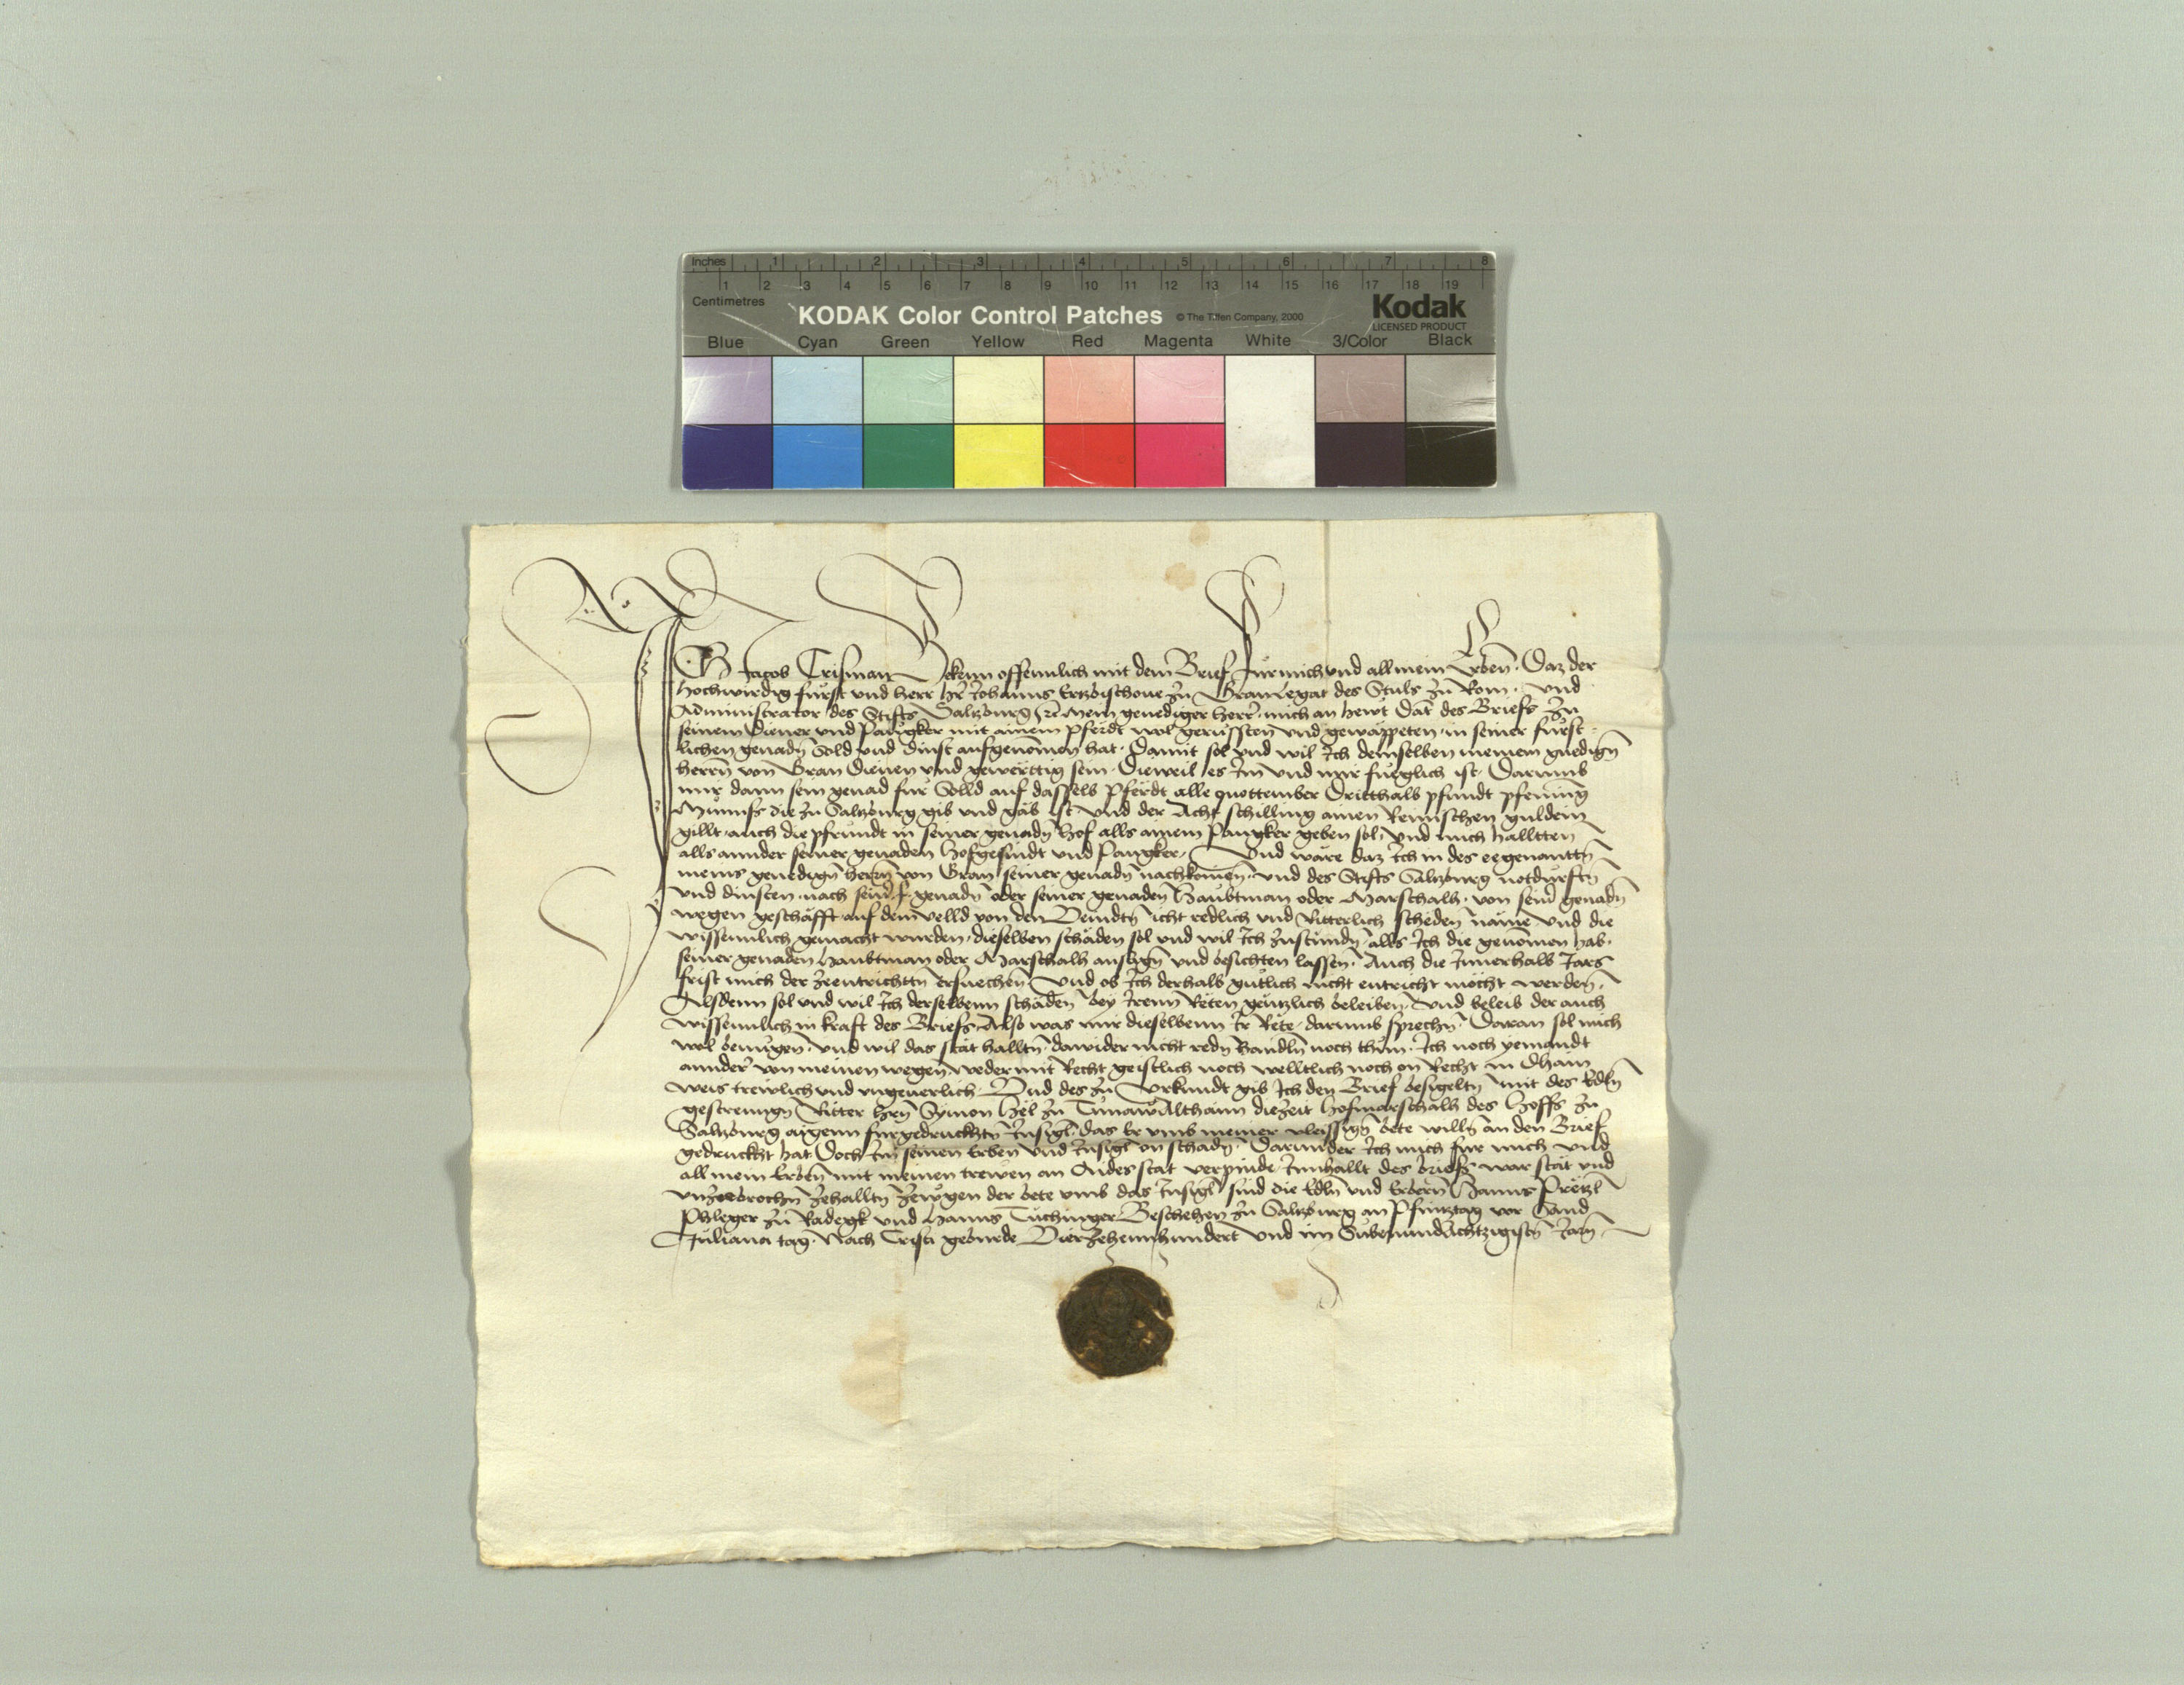 Inches 1 2 3 4 5 6 7 8
1 2 3 4 5 6 7 8 9 10 11 12 13 14 15 16 17 18 19
Centimetres
KODAK Color Control Patches © The Tiffen Company, 2000
Kodak
LICENSED PRODUCT
Blue Cyan Green Yellow Red Magenta White 3/Color Black
Ich Jacob Crisman Bekenn offennlich mit dem Brief fur mich vnd all mein Erben. Daz der
hochwirdig furst vnd herr her Johanns Ertzbischoue zu Gran Legat des Stuls zu Rom. vnd
Administrator des Stiffts Saltzburg mein genediger herr. mich an hewt Dat des Briefs zu
seinem Diener vnd Paugker mit ainem Pferdt wol gerussten vnd gewappeten. in seiner furst
lichen genadn Sold vnd dinst aufgenomen hat. Damit sol vnd wil Ich demselben meinem gnedign
herrn von Gran dienen vnd gewerttig sein. Dieweil es Im vnd mir fueglich ist. Darumb
mir dann sein genad fur Solld auf dasselb Pferdt alle quottember Dritthalb pfundt pfening
Munnss die zu Saltzburg gib vnd gab ist vnd der Acht schilling ainen Reinischen guldein
gillt. auch die pfrundt in seiner genadn hof alls ainem Paugker geben sol. vnd mich halltten
alls annder seiner genaden hofgesindt vnd Paugker. Vnd wäre daz Ich in des eegenanttn
meins genedign herrn von Gran seiner genadn nachkomen. vnd des Stiffts Saltzburg notdurfftn
vnd dinsten. nach seinr f. genadn oder seiner genaden haubtman oder Marschalh. von seinr genadn
wegen geschäfft auf dem velld von den Veindtn icht redlich vnd Ritterlich scheden näme vnd die
wissennlich gemacht wurden. dieselben schäden sol vnd wil Ich zustundn alls Ich die genomen hab.
seiner genaden haubtman oder Marschalh ansagn vnd besichten lassen. Auch die Innerhalb Jars
frist mich der zeentrichttn ersuechen Vnd ob Ich derhalb gutlich nicht entricht möcht werden.
Alsdenn sol vnd wil Ich derselbenn schäden bey Irenn Räten gäntzlich beleiben. vnd beleib der auch
wissennlich in kraft des Briefs. Also was mir dieselbenn Ir Räte. darumb sprechn. Daran sol mich
wol benugen. vnd wil das stät halltn. dawider nicht redn handln noch thun. Ich noch yemandt
annder von meinen wegen weder mit Recht geistlich noch welltlich noch on Recht in dhain
weis trewlich vnd vngeuerlich. Vnd des zu Vrkundt gib Ich den Brief besigeltn mit des Edln
gestrenngn Ritter hern Symon Hel zu Althann diezeit hofmarschalh des Hoffs zu
Saltzburg aigenn furgedruckhtn Insigl. das Er vmb meiner vleissign bete willn an den Brief
gedruckht hat Doch Im seinen Erben vnd Insigl on schadn. Darunder Ich mich fur mich vnd
all mein Erben mit meinen trewen an Aydes stat verpinde Innhallt des briefs war stät vnd
vnzerbrochn zehalltn Zewgen der bete vmb das Insigl sind die Edln vnd Erbern Hanns
Phleger zu Radegk vnd Hanns Tuchinger Beschehen zu Saltzburg an Pfinztag vor Sand
Juliana tag. Nach Cristi geburde Vierzehennhundert vnd im Sibenundachtzigistn Jarn